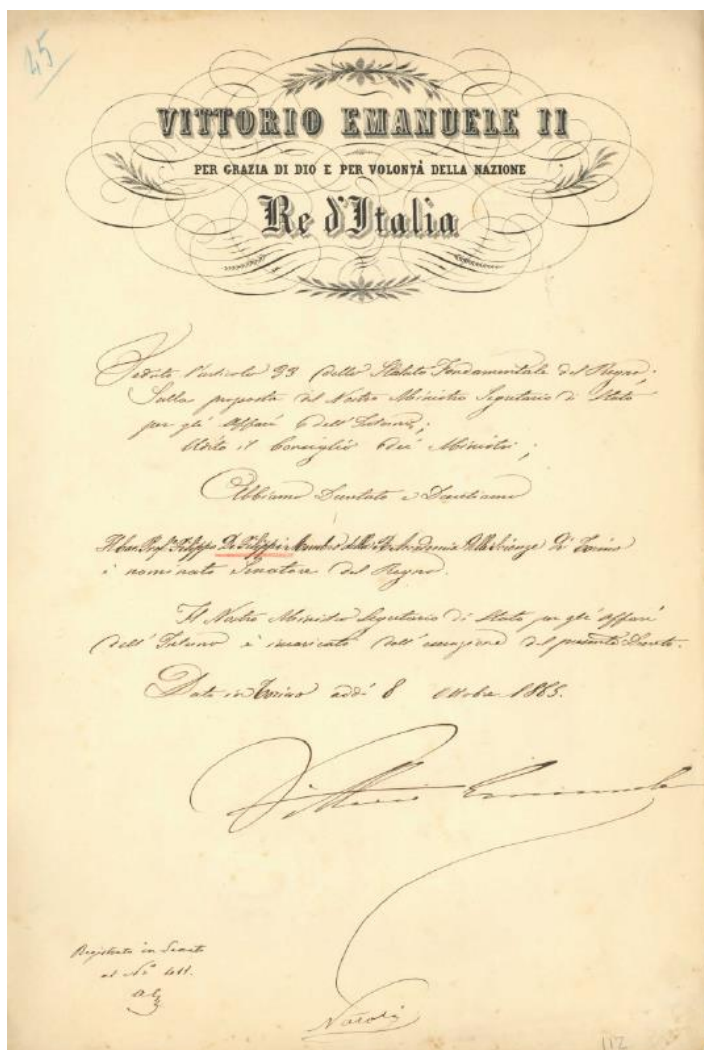 45
VITTORIO EMANUELE II
PER GRAZIA DI DIO E PER VOLONTÀ DELLA NAZIONE
Re d'Italia
Veduto l'articolo 33 dello Statuto Fondamentale del Regno;
Sulla proposta del Nostro Ministro Segretario di Stato
per gli Affari dell'Interno;
Udito il Consiglio dei Ministri;
Abbiamo Decretato e Decretiamo
Il Cav. Prof. Filippo De Filippi Membro della R. Accademia delle Scienze di Torino
è nominato Senatore del Regno.
Il Nostro Ministro Segretario di Stato per gli Affari
dell'Interno è incaricato dell'esecuzione del presente Decreto.
Dato in Torino addì 8 Ottobre 1865.
Vittorio Emanuele
Registrato in Senato
al N° 411.
Natoli
112